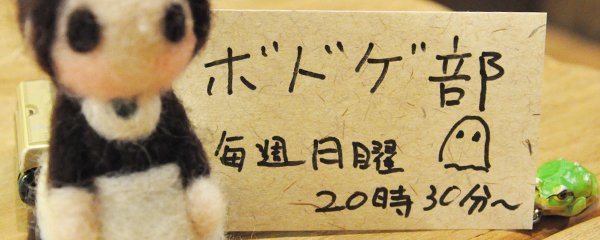 ボドゲ部
毎週月曜
20時30分～